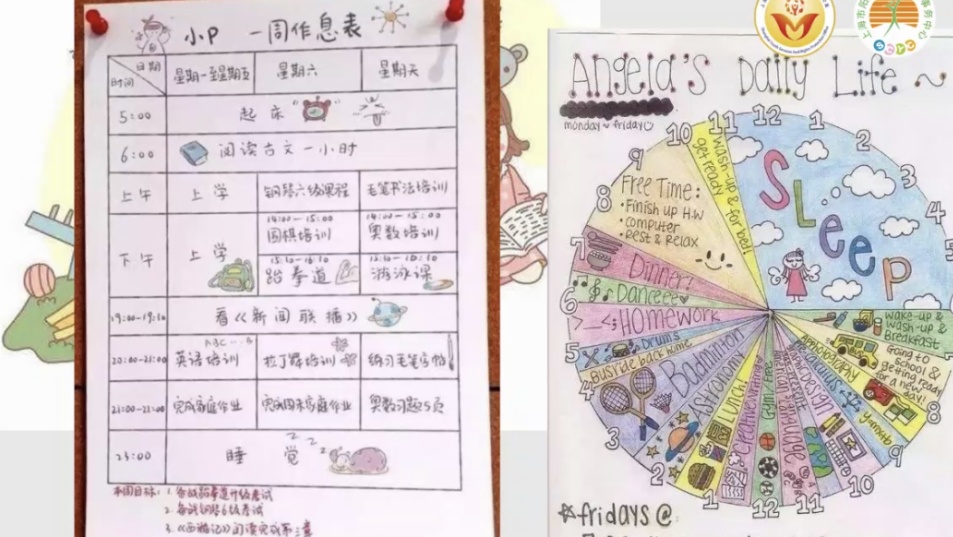 小P 一周作息表
日期
时间
星期一至星期五 星期六 星期天
5:00 起床
6:00 阅读古文一小时
上午 上学 钢琴六级课程 毛笔书法培训
下午 上学
14:00-15:00
围棋培训
14:00-15:00
奥数培训
15:10-16:10
跆拳道
游泳课
看《新闻联播》
ABC
20:00-21:00 英语培训 拉丁舞培训 练习毛笔字帖
完成家庭作业 完成周末家庭作业 奥数习题25页
23:00 睡觉
zzz
本周目标:1.参加跆拳道升级考试
2.备战钢琴6级考试
3.《西游记》阅读完成第三章
Angela's Daily Life ~
monday ~ friday
12
1
2
3
4
5
8
9
10
11
12
1
2
3
4
5
6
7
8
9
10
11
SLeep
wake-up &
wash-up &
Breakfast
Going to
School &
getting ready
for a new
day!
Yearbook
Calculus
Design
Language
Gym/Free
Creative Writing
Lunch!
Astronomy
Badminton
Busride back home
Drums
HOMEWORK
Danceee
Dinner?
Free Time:
• Finish up H.W
• Computer
• Rest & Relax
wash-up &
get ready for bed!
fridays @